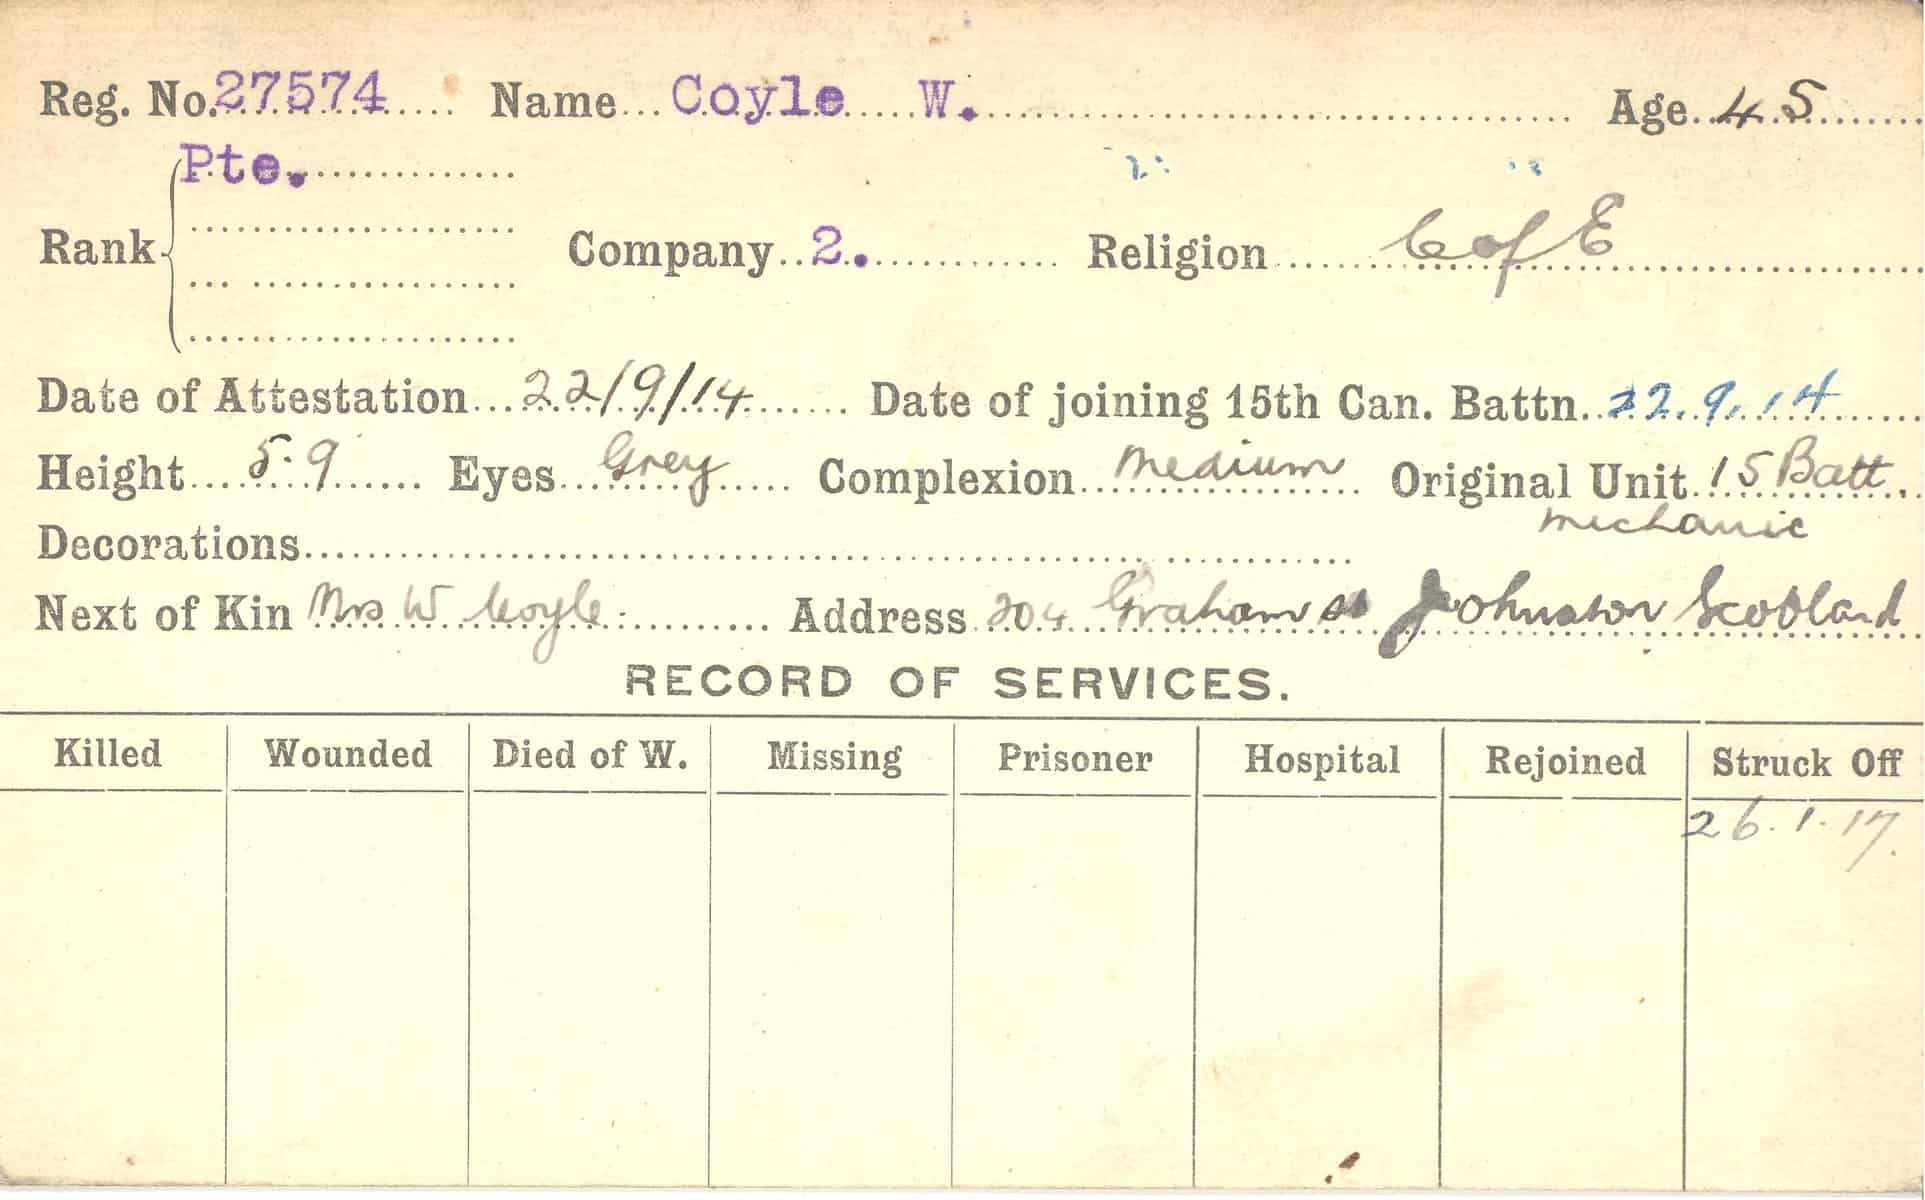 Reg. No. 27574 Name Coyle W. Age 45
Pte.
Rank Company 2. Religion C of E
Date of Attestation 22/9/14 Date of joining 15th Can. Battn. 22.9.14
Height 5.9 Eyes Grey Complexion Medium Original Unit 15 Batt.
mechanic
Decorations
Next of Kin Mrs W Coyle. Address 204 Graham St Johnston Scotland
RECORD OF SERVICES.
Killed Wounded Died of W. Missing Prisoner Hospital Rejoined Struck Off
26.1.17.